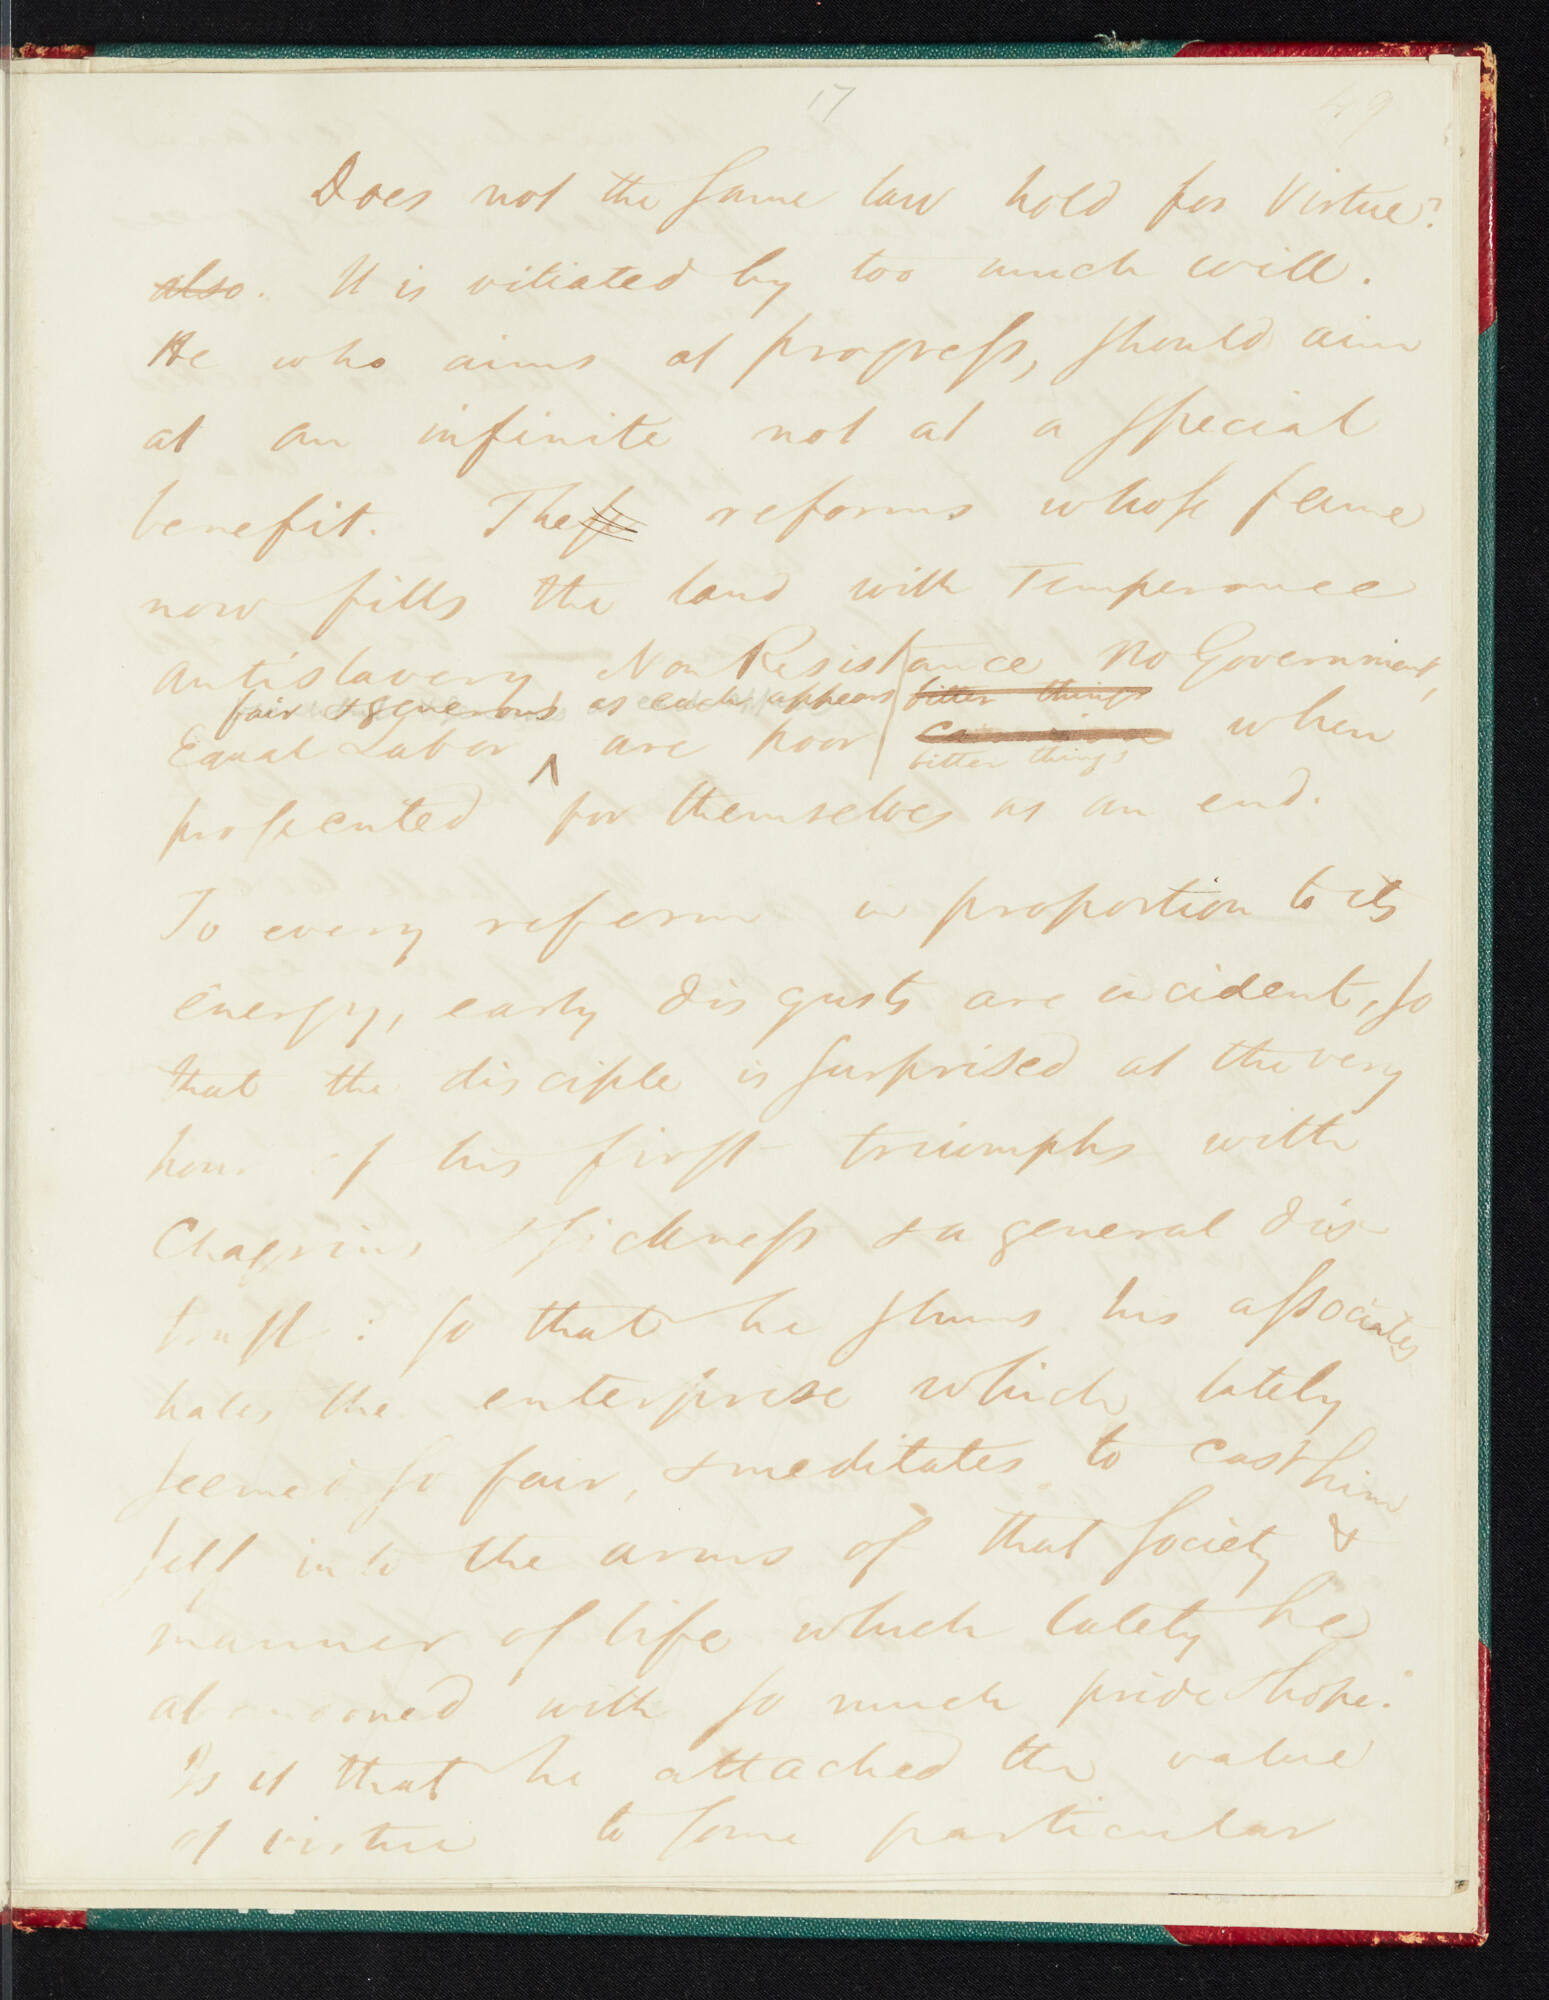 17
49
Does not the same law hold for Virtue?
also. It is vitiated by too much will.
He who aims at progress, should aim
at an infinite not at a special
benefit. These reforms whose fame
now fills the land with Temperance
Antislavery Non Resistance No Government,
fair & generous as each appears bitter things
Equal Labor ^ are poor when
bitter things
prosecuted for themselves as an end.
To every reform in proportion to its
energy, early disgusts are incident, so
that the disciple is surprised at the very
hour of his first triumphs with
Chagrins & sickness & a general dis
trust: so that he shuns his associates
hates the enterprise which lately
seemed so fair, & meditates to cast him
self into the arms of that society &
manner of life which lately he
abandoned with so much pride & hope.
Is it that he attached the value
of virtue to some particular